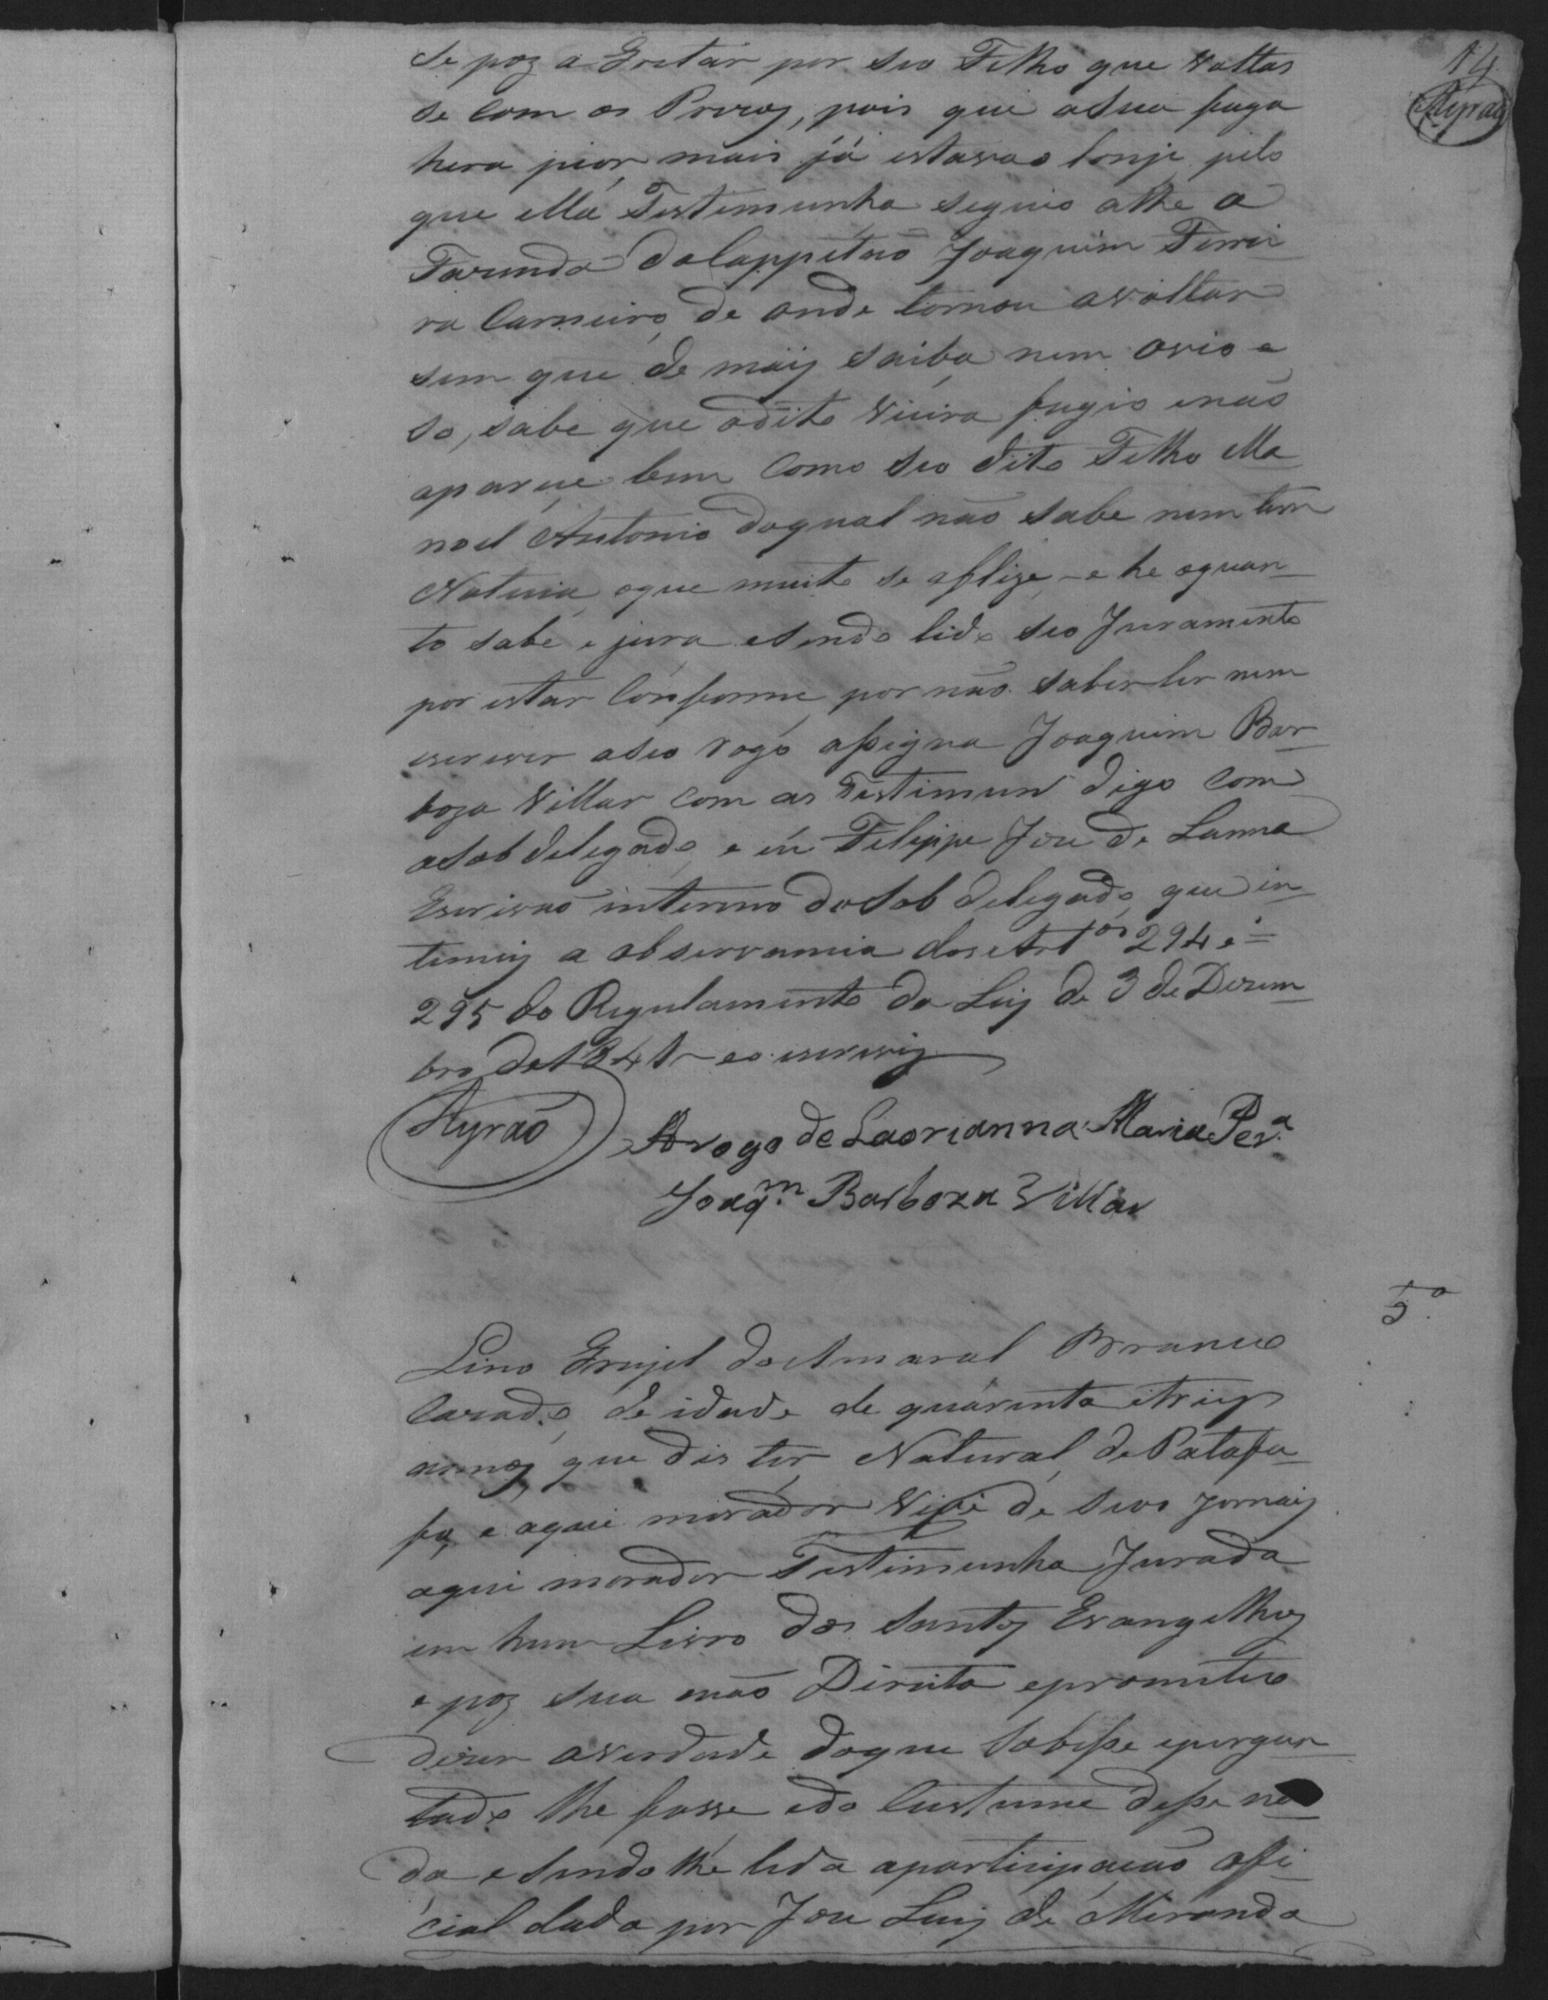 14
Ayrão
se poz a Gritar por seo Filho que Voltas
se com os Prezos, pois que a sua fuga
hera pior, mais já estavao lonje pelo
que ella Testemunha seguio athe a
Fazenda do Cappitão Joaquim Ferrei
ra Carneiro, de onde tornou a voltar
sem que de maiz saiba nem ovio e
so, sabe que o dito Vieira fugio enão
aparece bem como seo dito Filho Ma
noel Antonio do qual não sabe nem tem
Noticia, oque muito se aflige, e he oquan
to sabe e jura esendo lido seo Juramento
por estar Conforme, por não saber ler nem
escrever aseo rogo assigna Joaquim Bar
boza Villar com as Testimun digo com
o Sob delegado, e eu Felippe Joze de Lanna
Escrivão interino do Sob delegado, que in
temiz a observancia dos Art.os 294 e
295 do Regulamento da Leiz de 3 de Dezem
bro de 1841 eo escreviz
Ayrão
Arogo de Laorianna Maria Per.a
Joaq.m Barboza Villar
5.a
Lino Gurjel do Amaral Branco
Cazado, de idade de quarenta etreiz
annoz, que dis ser Natural de Patafu
fo, e aqui morador Vive de seos jornaiz
aqui morador Testimunha Jurada
em hum Livro dos Santoz Evangelhoz
e poz sua mão Direita eprometeo
dizer averdade doque Sobesse eporgun
tado lhe fosse edo Custume disse na
da esendo lhe lida aparticipação offi
cial dada por Joze Luiz de Miranda